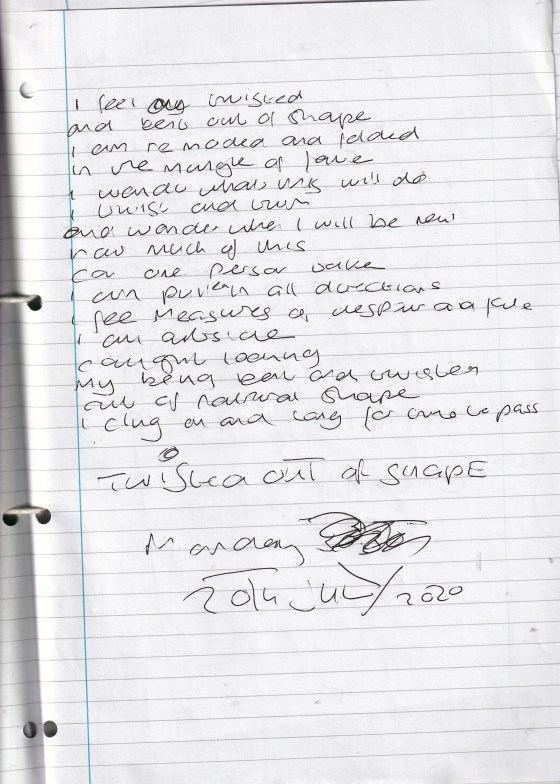 I feel twisted
and bent out of shape
I am remoded and folded
in the mangle of fate
I wonder what this will do
I twist and turn
and wonder when I will be new
how much of this
can one person take
I am pulled in all directions
I see measures of despair and fate
I am outside
caught looking
My being bent and twisted
out of natural shape
I cling on and long for time to pass
TwiSted OUT of SHAPE
Monday
20th July/2020